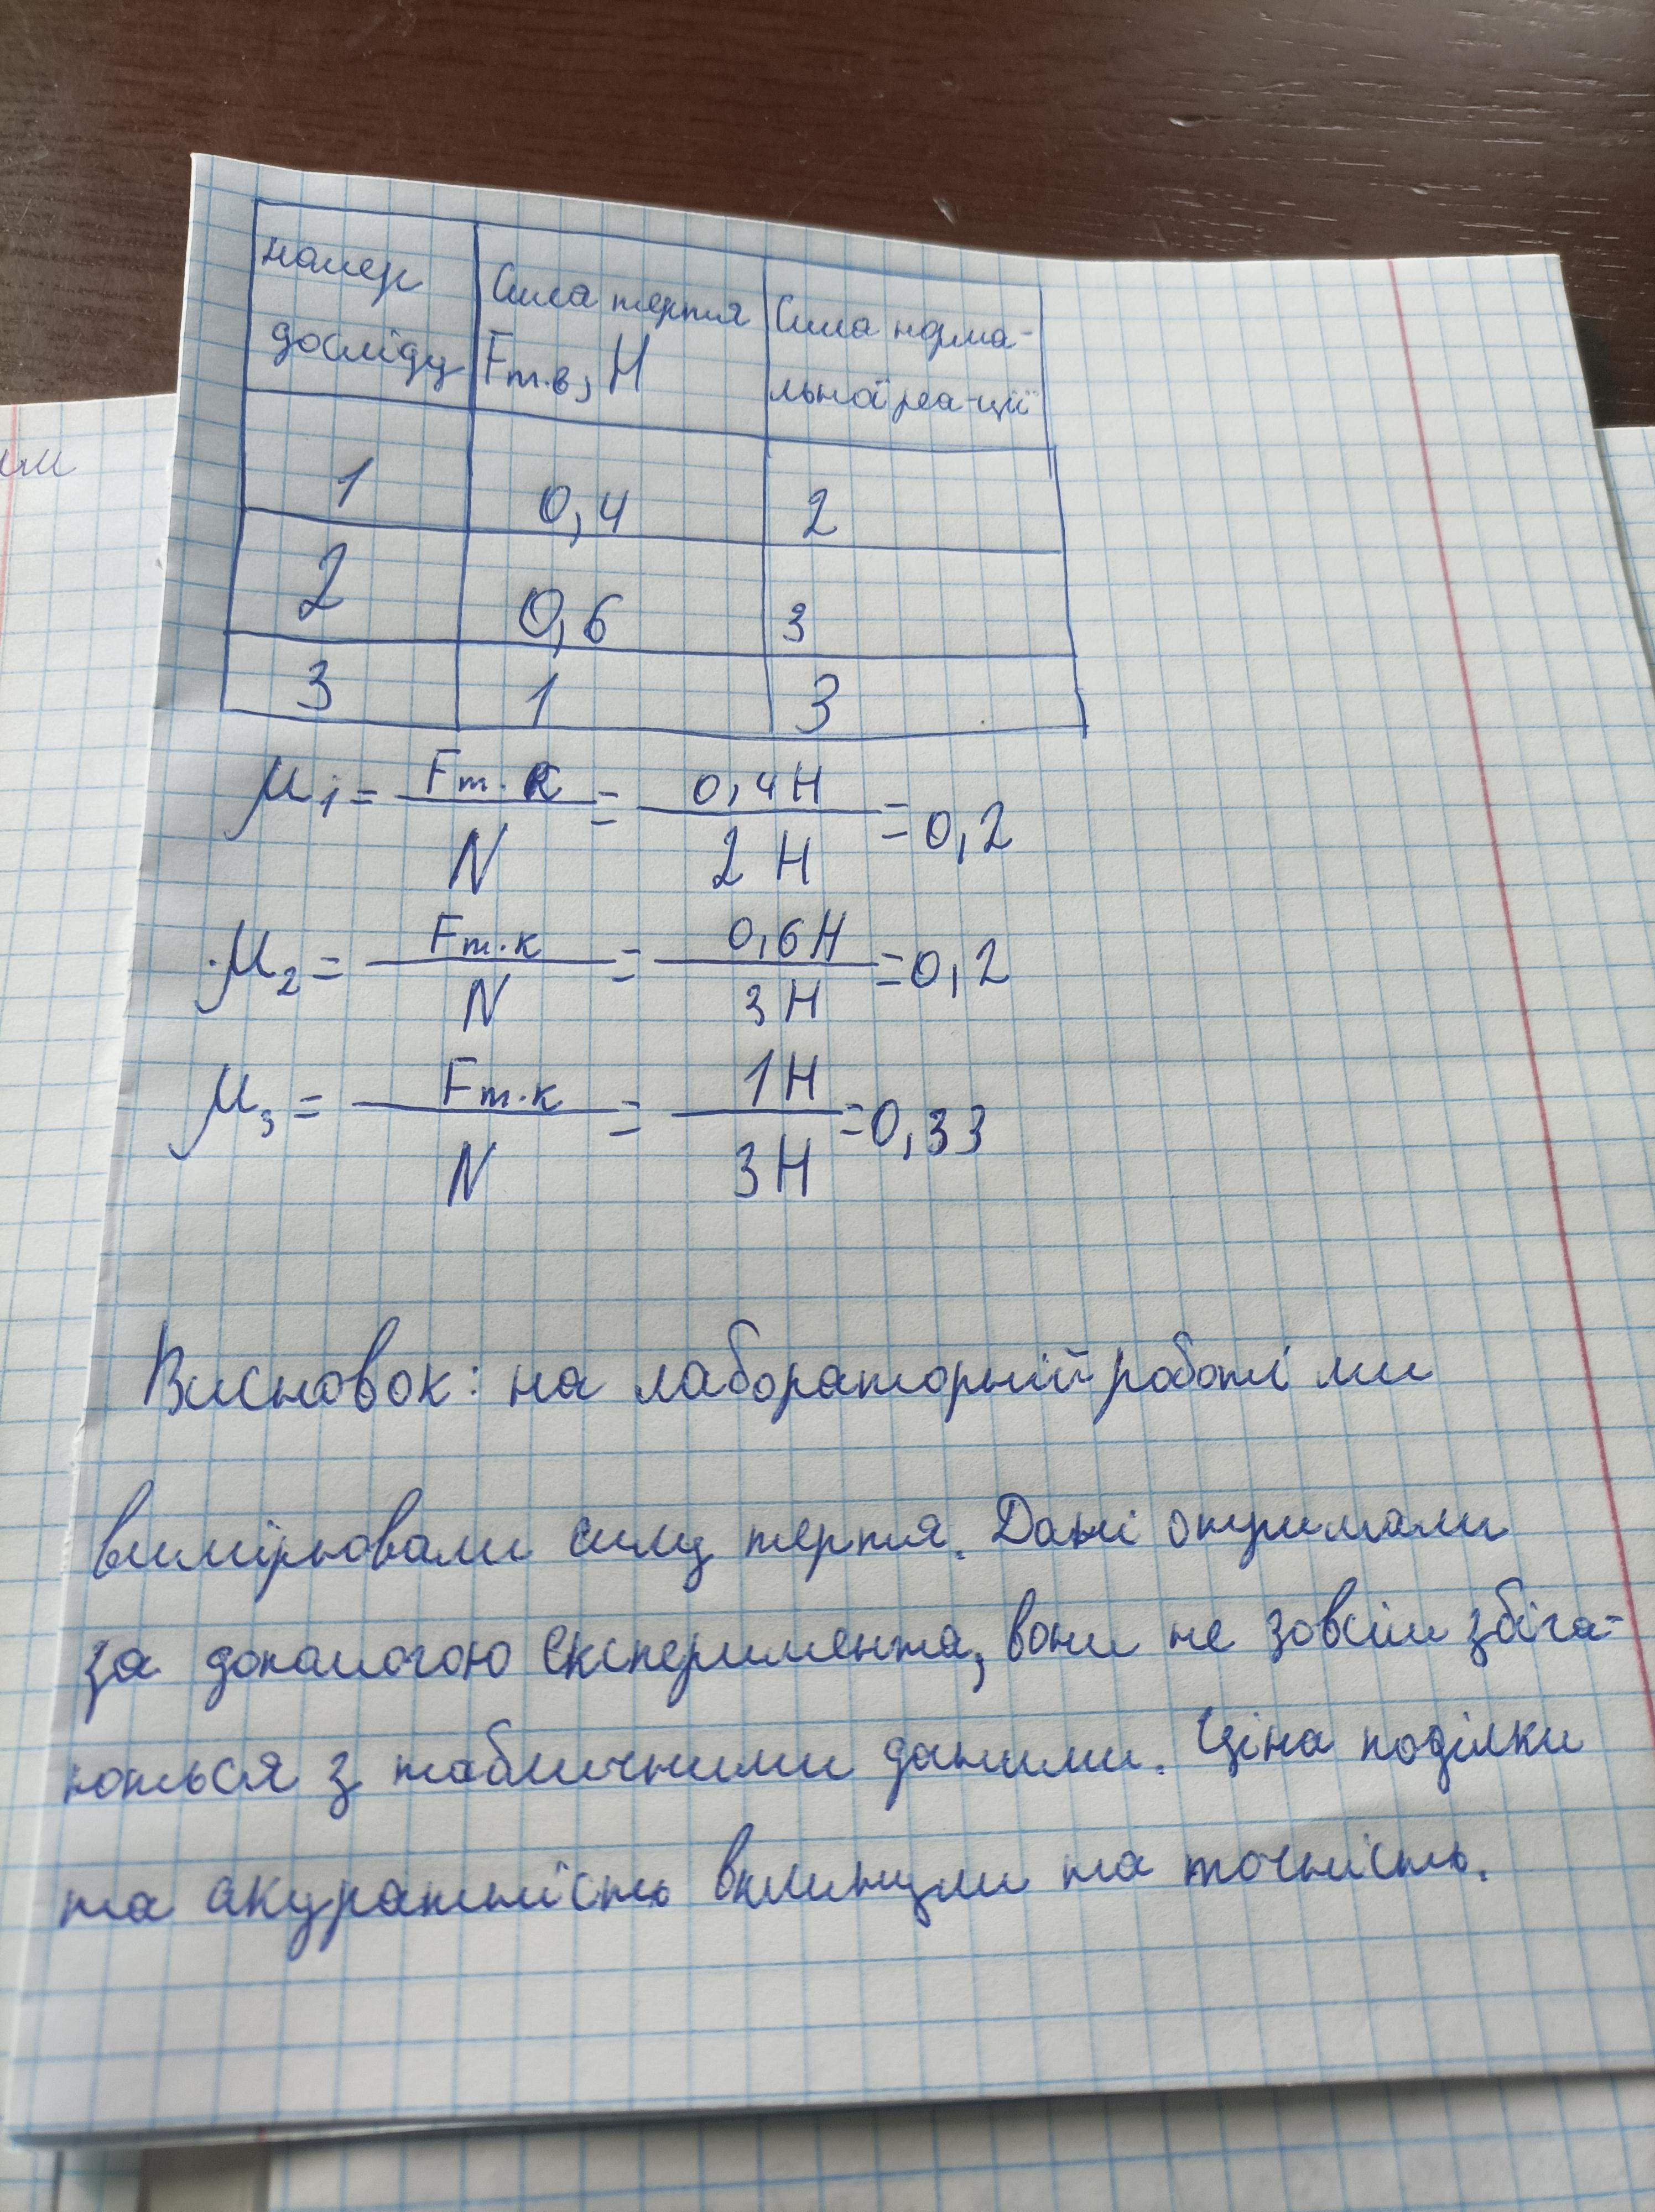 номер
досліду
Сила тертя
Fт.в, Н
Сила норма-
льної реа-ції
1 0,4 2
2 0,6 3
3 1 3
μ1 = Fт.к / N = 0,4Н / 2 Н = 0,2
μ2 = Fт.к / N = 0,6Н / 3Н = 0,2
μ3 = Fт.к / N = 1Н / 3Н = 0,33
Висновок: на лабораторній роботі ми
вимірювали силу тертя. Дані отримали
за допомогою експеримента, вони не зовсім збіга-
ються з табличними даними. Ціна поділки
та акуратність вплинули на точність.